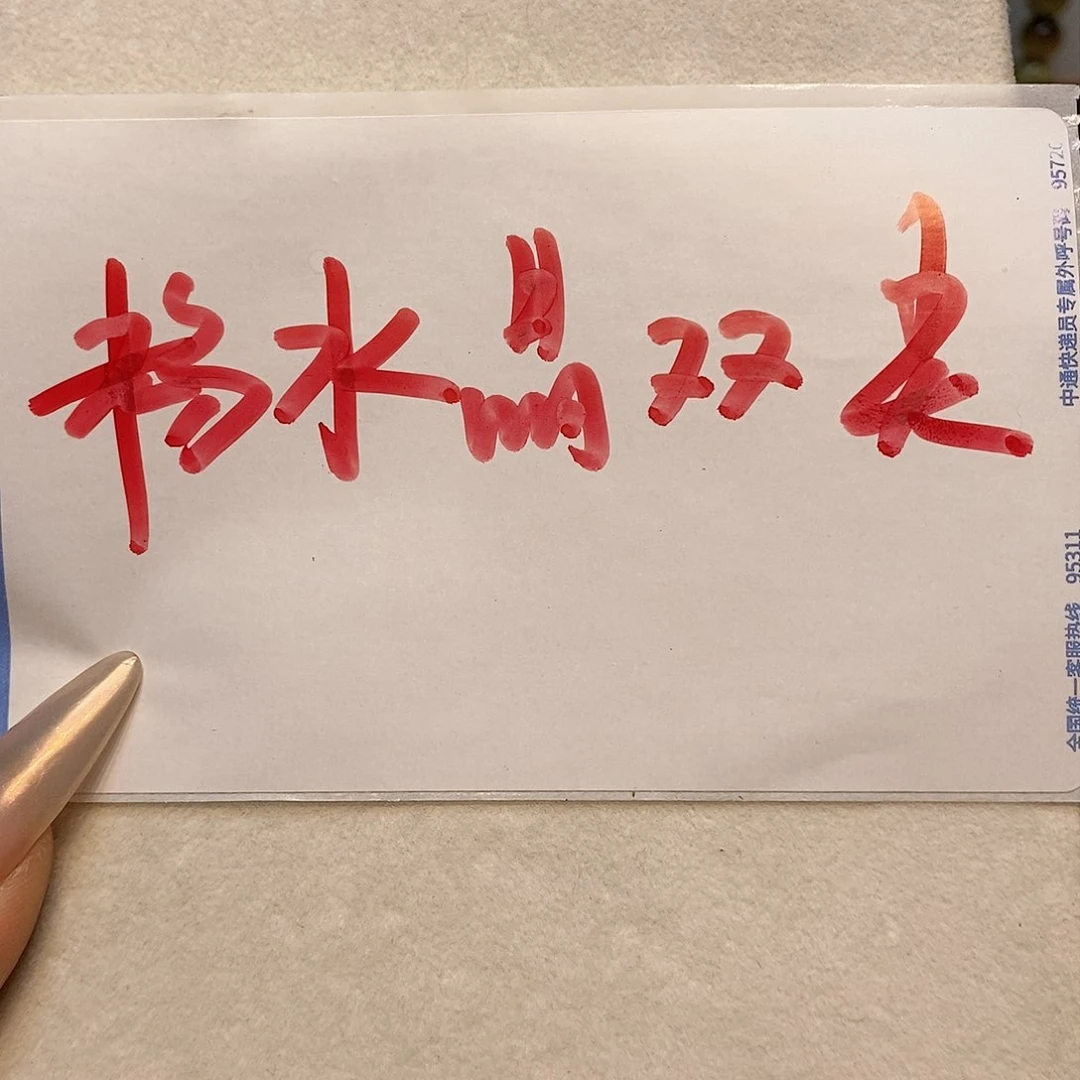 杨水晶双表
中通快递员专属外呼号码 95720
全国统一客服热线 95311